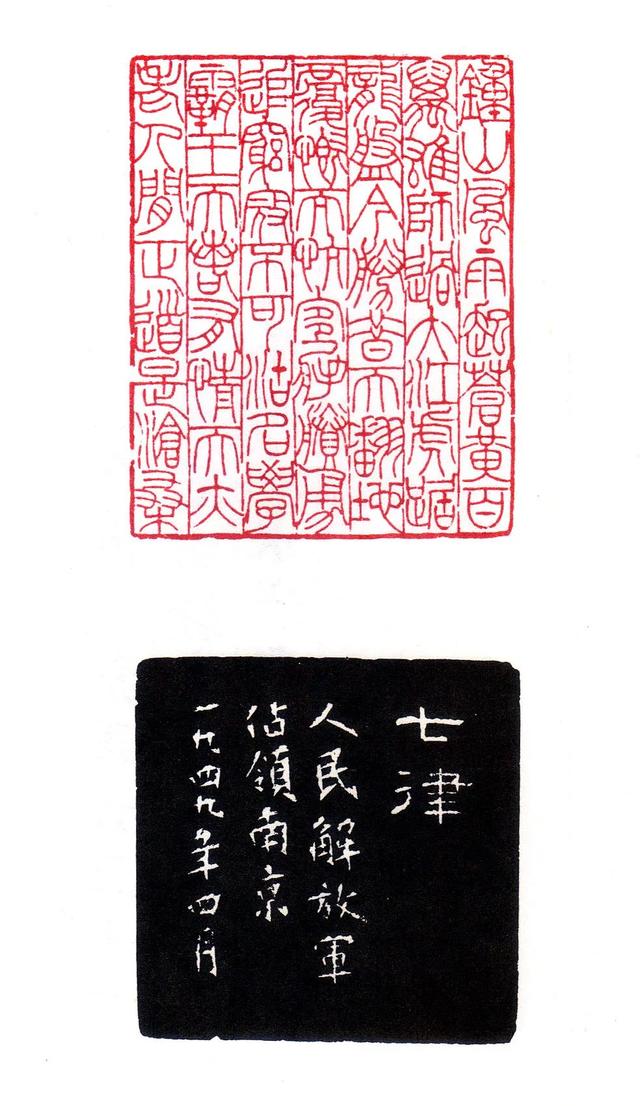 鐘山風雨起蒼黃百
萬雄師過大江虎踞
龍盤今勝昔天翻地
覆慨而慷宜將賸勇
追窮寇不可沽名學
霸王天若有情天亦
老人間正道是滄桑
七律
人民解放軍
佔領南京
一九四九年四月